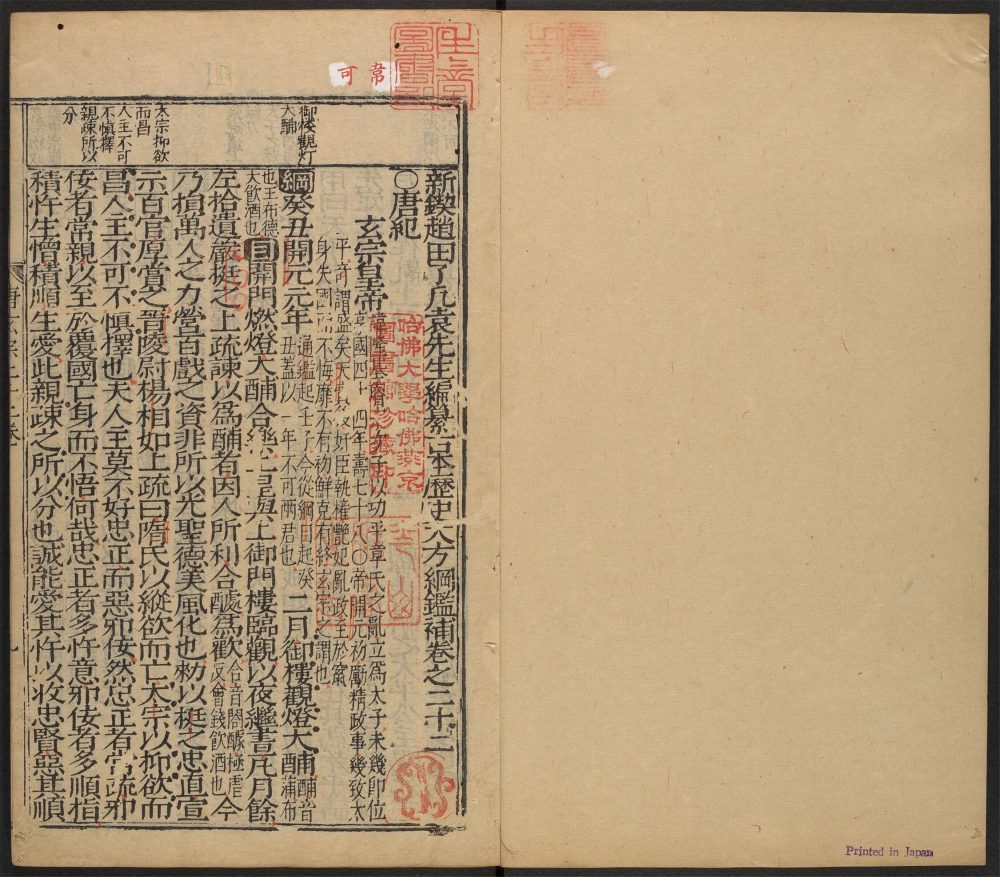 新鍥趙田了凡袁先生編纂古本歷史大方綱鑑補卷之二十二
○唐紀
玄宗皇帝
子以功平韋氏之亂立爲太子未幾卽位
四十四年壽七十八○帝開元初勵精政事幾致太
平可謂盛矣天寶以後奸臣執權艷妃亂政至於竄
身失國而不悔靡不有初鮮克有終玄宗之謂也
綱癸丑開元元年
通鑑起壬子今從綱目起癸
丑蓋以一年不可兩君也
二月御樓觀燈大酺
酺音
蒲布
也王布德
大飲酒也
目開門燃燈大酺合樂上皇與上御門樓臨觀以夜繼晝凡月餘
左拾遺嚴挺之上疏諫以爲酺者因人所利合醵爲歡
合音閤醵極虐
反會錢飲酒也
今
乃損萬人之力營百戲之資非所以光聖德美風化也勑以挺之忠直宣
示百官厚賞之晉陵尉楊相如上疏曰隋氏以縱欲而亡太宗以抑欲而
昌人主不可不慎擇也夫人主莫不好忠正而惡邪佞然忠正者常疏邪
佞者常親以至於覆國亡身而不悟何哉忠正者多忤意邪佞者多順指
積忤生憎積順生愛此親疎之所以分也誠能愛其忤以收忠賢惡其順
御樓觀灯
大酺
太宗抑欲
而昌
人主不可
不慎擇
親疎所以
分
韋
可
哈佛大學哈佛燕京
圖書館珍藏印
Printed in Japan